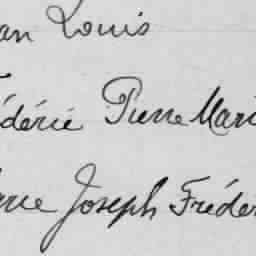 an Louis
édéric Pierre Mari
rre Joseph Fréder